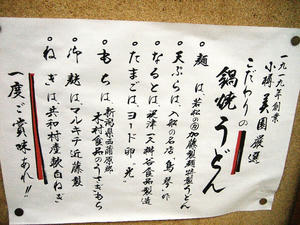 一九一九年創業
小樽 美園 厳選
こだわりの
鍋焼うどん
○麺は、若松の㋕加藤製麺特製うどん
○天ぷらは、入船の名店、鳥琴の作
○なるとは、焼津 天狮谷食品製造
○たまごは、ヨード卵、光
○もちは、新潟県西蒲原郡
木村食品のうさぎもち
○冷麩は、マルキチ近藤製
○ねぎは、共和村産軟白ねぎ
一度ご賞味あれ!!